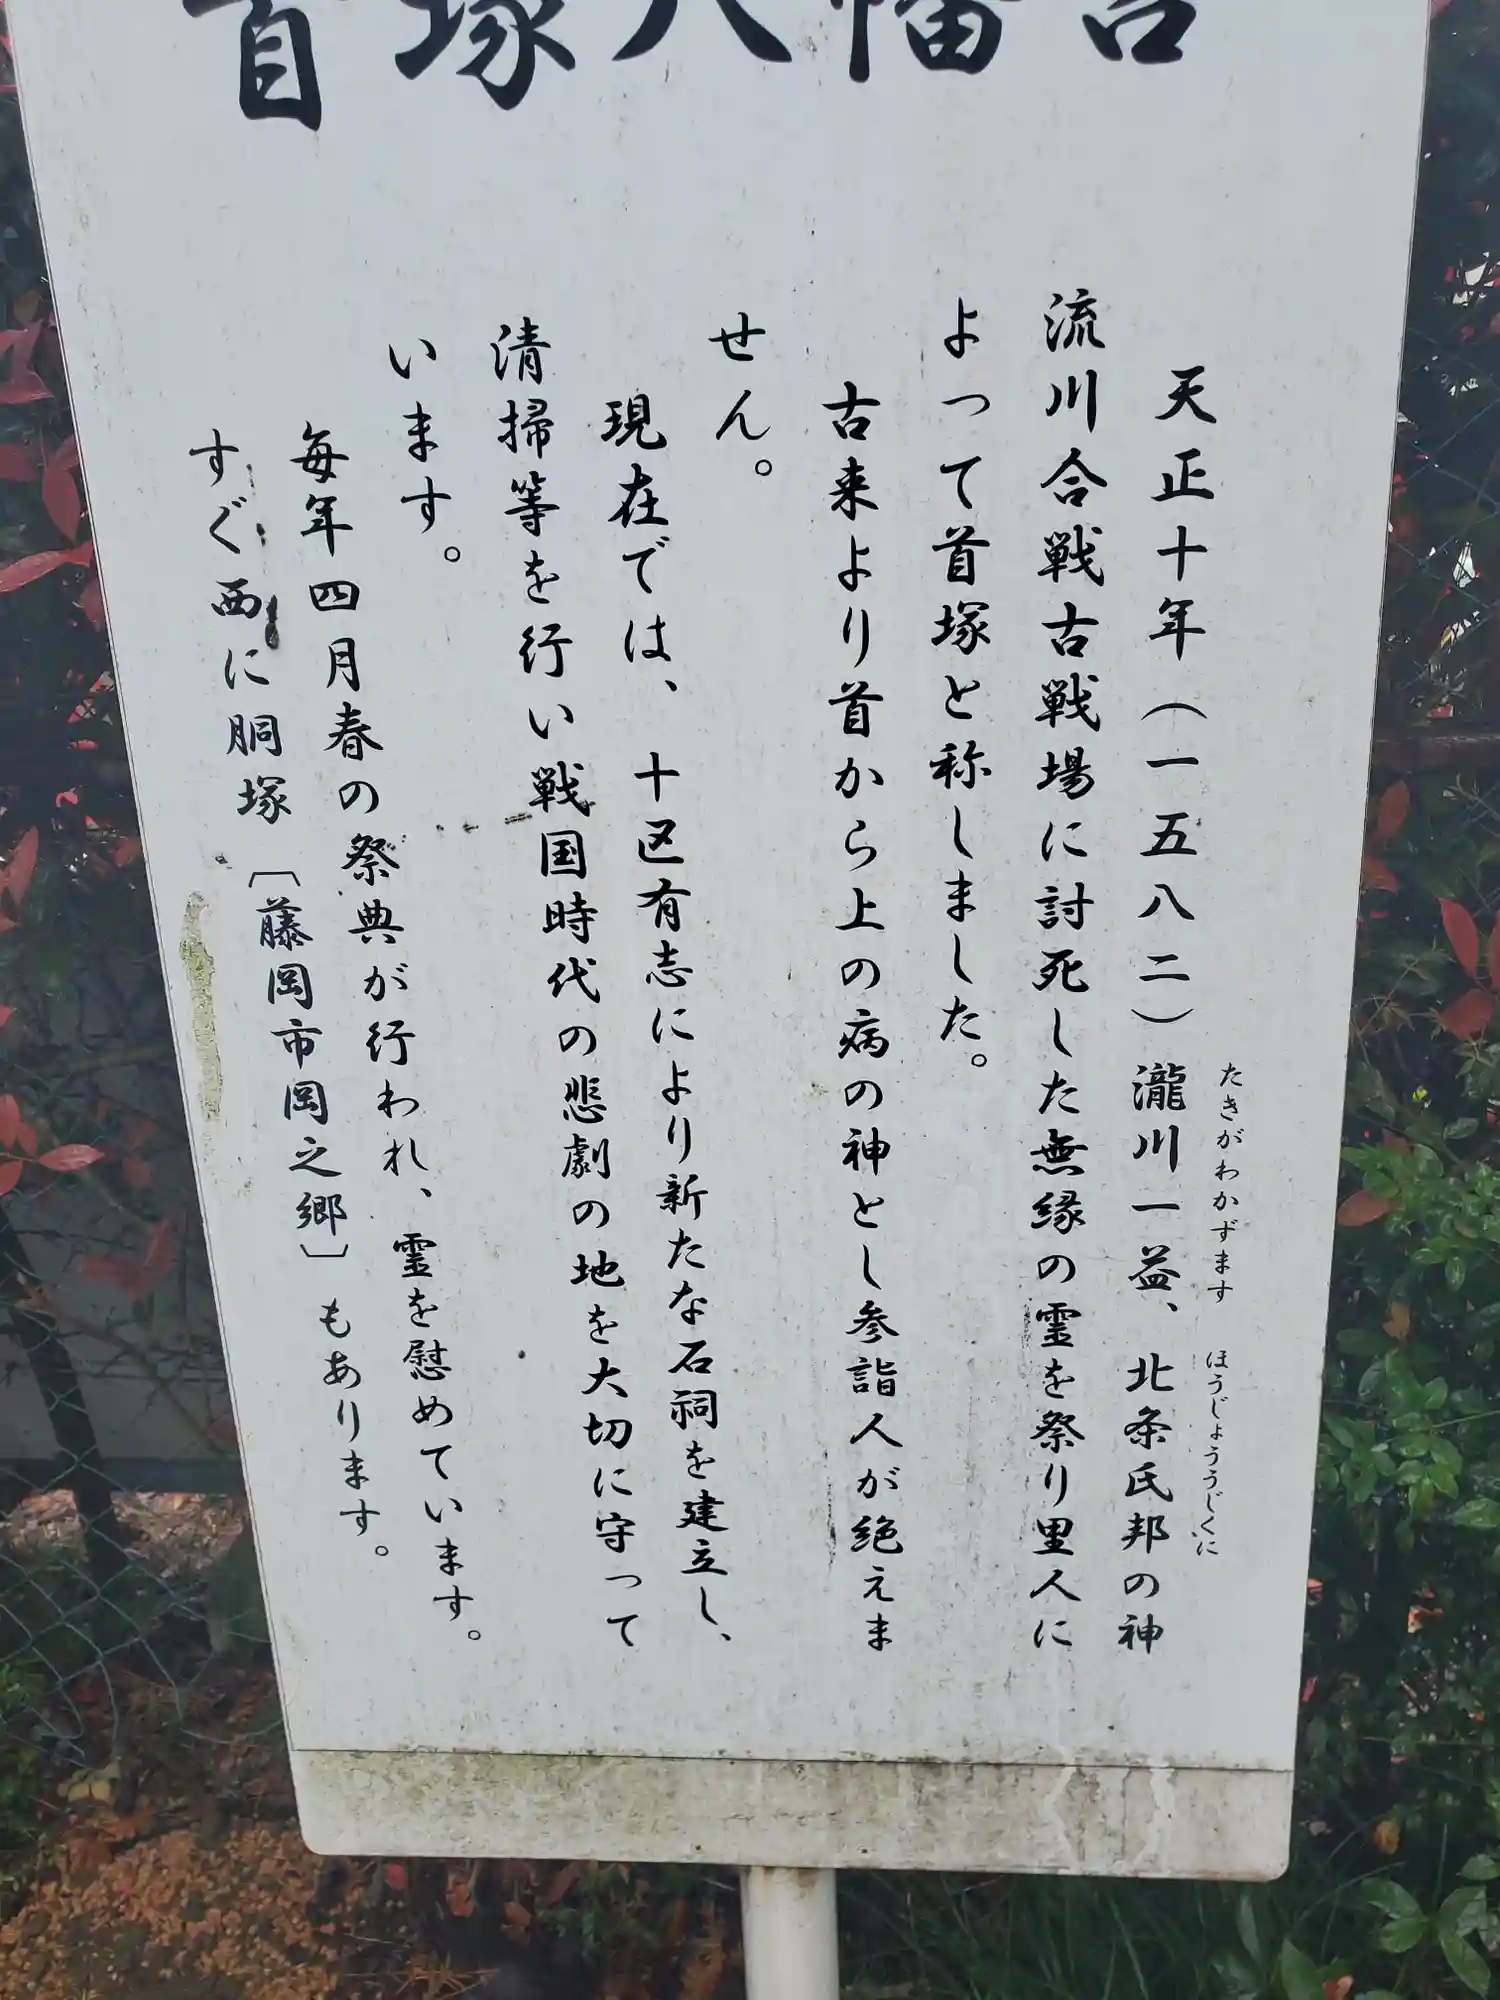 首塚八幡宮
天正十年（一五八二）瀧川一益、北条氏邦の神
たきがわかずます
ほうじょううじくに
流川合戦古戦場に討死した無縁の霊を祭り里人に
よって首塚と称しました。
古来より首から上の病の神とし参詣人が絶えま
せん。
現在では、十区有志により新たな石祠を建立し、
清掃等を行い戦国時代の悲劇の地を大切に守って
います。
毎年四月春の祭典が行われ、霊を慰めています。
すぐ西に胴塚〔藤岡市岡之郷〕もあります。